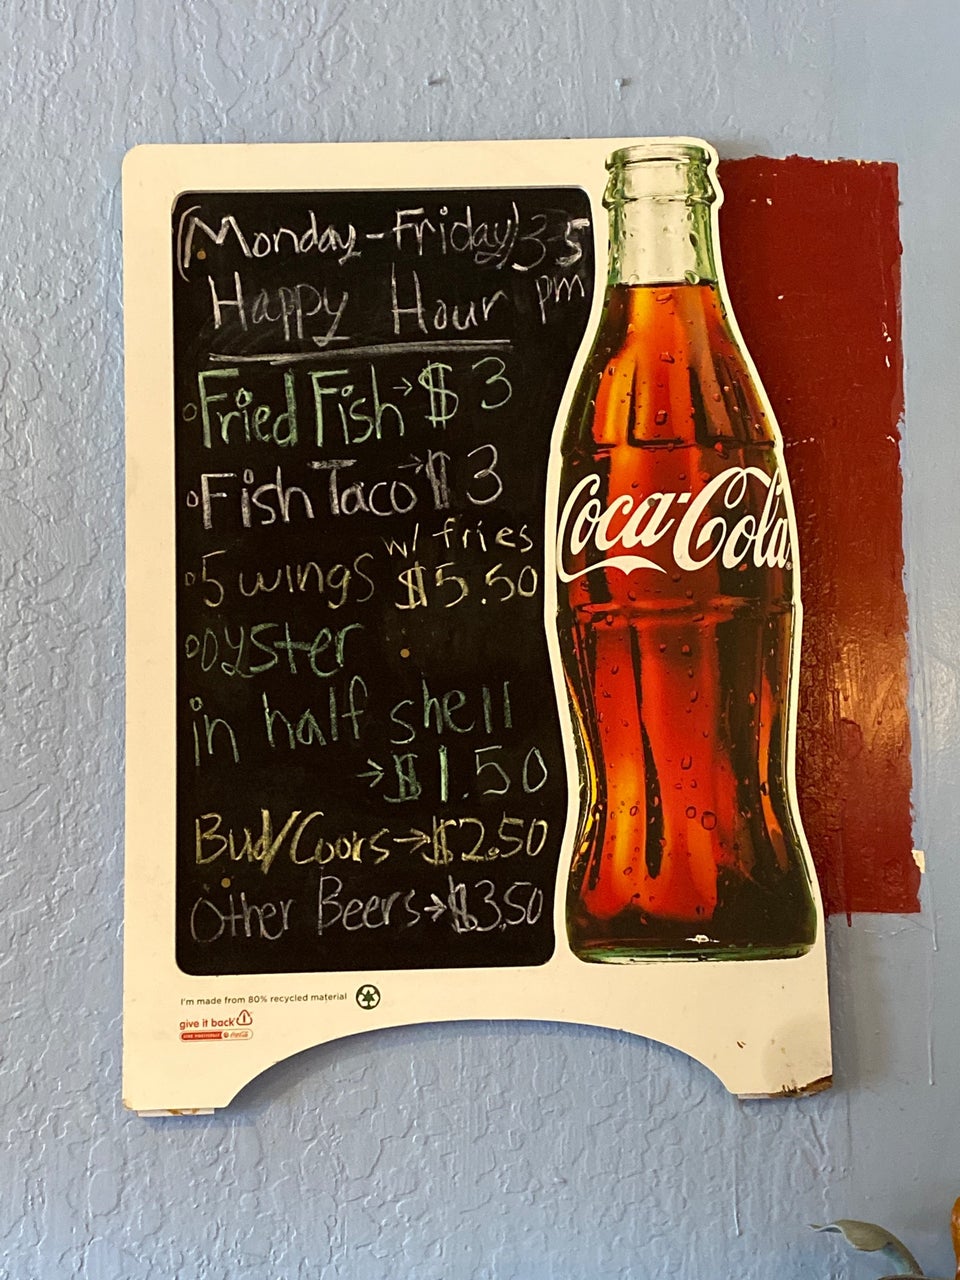 (Monday-Friday) 3-5 pm
Happy Hour
Fried Fish → $3
Fish Taco → $3
5 wings w/ fries $5.50
oyster
in half shell
→ $1.50
Bud/Coors → $2.50
Other Beers → $3.50
Coca-Cola
I'm made from 80% recycled material
give it back